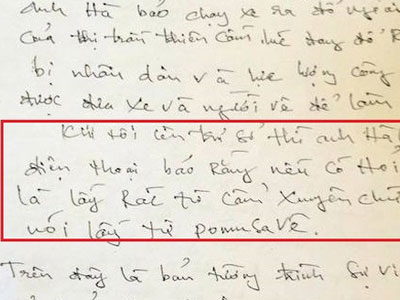 Anh Hà bảo chạy xe ra đổ ngoài
của thị trấn Thiên Cầm, lúc đang đổ R
bị nhân dân và lực lượng công
được đưa xe và người về để làm
Khi tôi lên trụ sở thì anh Hà
điện thoại bảo Rằng nếu có Hỏi
là lấy Rác từ Cẩm Xuyên chứ
nói lấy từ pomusa về.
Trên đây là bản tường trình sự vi